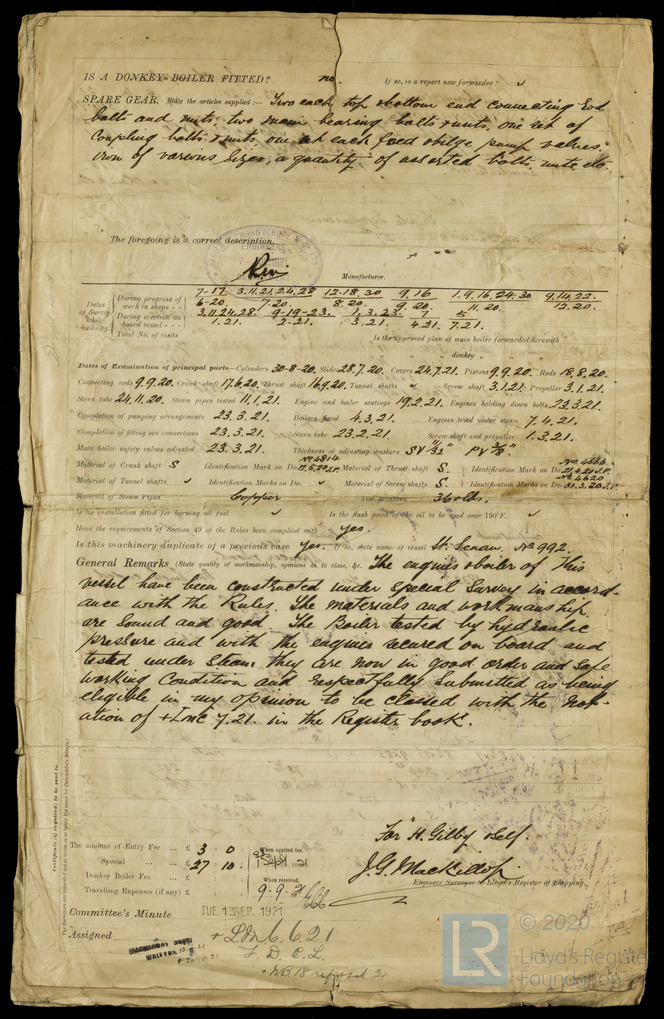 IS A DONKEY BOILER FITTED? no. If so, is a report now forwarded? ✓
SPARE GEAR. State the articles supplied :— Two each top & bottom end connecting rod
bolts and nuts, two main bearing bolts & nuts, one set of
coupling bolts & nuts, one set each feed & bilge pump valves,
iron of various sizes, a quantity of assorted bolts nuts etc.
The foregoing is a correct description,
THORNYCROFT
ENGINEERS
Manufacturer.
Dates of Survey while building
During progress of work in shops - -
7-17 3.11.21.24.28 12.18.30 9,16 1.9.16.24.30 9.14.22.
6-20. 7.20. 8.20. 9.20. 11.20. 12.20
During erection on board vessel - - -
3.11.24.28 9-19-23. 1.3.23. 7 5
1.21. 2-21. 3.21. 4.21. 7.21.
Total No. of visits
Is the approved plan of main boiler forwarded herewith
donkey " " "
Dates of Examination of principal parts—Cylinders 30-8-20. Slides 28.7.20. Covers 24.7.21. Pistons 9.9.20. Rods 18.8.20.
Connecting rods 9.9.20. Crank shaft 17.6.20. Thrust shaft 16.9.20. Tunnel shafts ✓ Screw shaft 3.1.21. Propeller 3.1.21.
Stern tube 24.11.20. Steam pipes tested 11.1.21. Engine and boiler seatings 19.2.21. Engines holding down bolts 23.3.21.
Completion of pumping arrangements 23.3.21. Boilers fixed 4.3.21. Engines tried under steam 7.4.21.
Completion of fitting sea connections 23.3.21. Stern tube 23.2.21. Screw shaft and propeller 1.3.21.
Main boiler safety valves adjusted 23.3.21. Thickness of adjusting washers SV 11/32" PV 3/8"
Material of Crank shaft S Identification Mark on Do. No 4814 Material of Thrust shaft S. Identification Mark on Do. No. 4666 21.4.20 J.P.
Material of Tunnel shafts ✓ Identification Marks on Do. ✓ Material of Screw shafts S. Identification Marks on Do. No 4620 31.3.20 J.P.
Material of Steam Pipes Copper Test pressure 360 lbs.
Is an installation fitted for burning oil fuel ✓ Is the flash point of the oil to be used over 150°F. ✓
Have the requirements of Section 49 of the Rules been complied with yes.
Is this machinery duplicate of a previous case yes. If so, state name of vessel St. Senan. No 992.
General Remarks (State quality of workmanship, opinions as to class, &c. The engines & boiler of this
vessel have been constructed under special survey in accord-
ance with the Rules. The materials and workmanship
are sound and good. The Boiler tested by hydraulic
pressure and with the engines secured on board and
tested under steam they are now in good order and safe
working condition and respectfully submitted as being
eligible in my opinion to be classed with the not-
ation of + LMC 7.21. in the Register book.
Certificate (if required) to be sent to
The amount of Entry Fee ... £ 3 0
Special ... ... £ 27 10
Donkey Boiler Fee ... £
Travelling Expenses (if any) £
When applied for,
Sept 21
When received,
9.9.21
For H. Gilby & self
J. G. Mackillop
Engineer Surveyor to Lloyd's Register of Shipping.
Committee's Minute TUE. 13 SEP. 1921
Assigned + LMC 6.21
F. D. C.L.
© 2020
LR
Lloyd's Register
Foundation